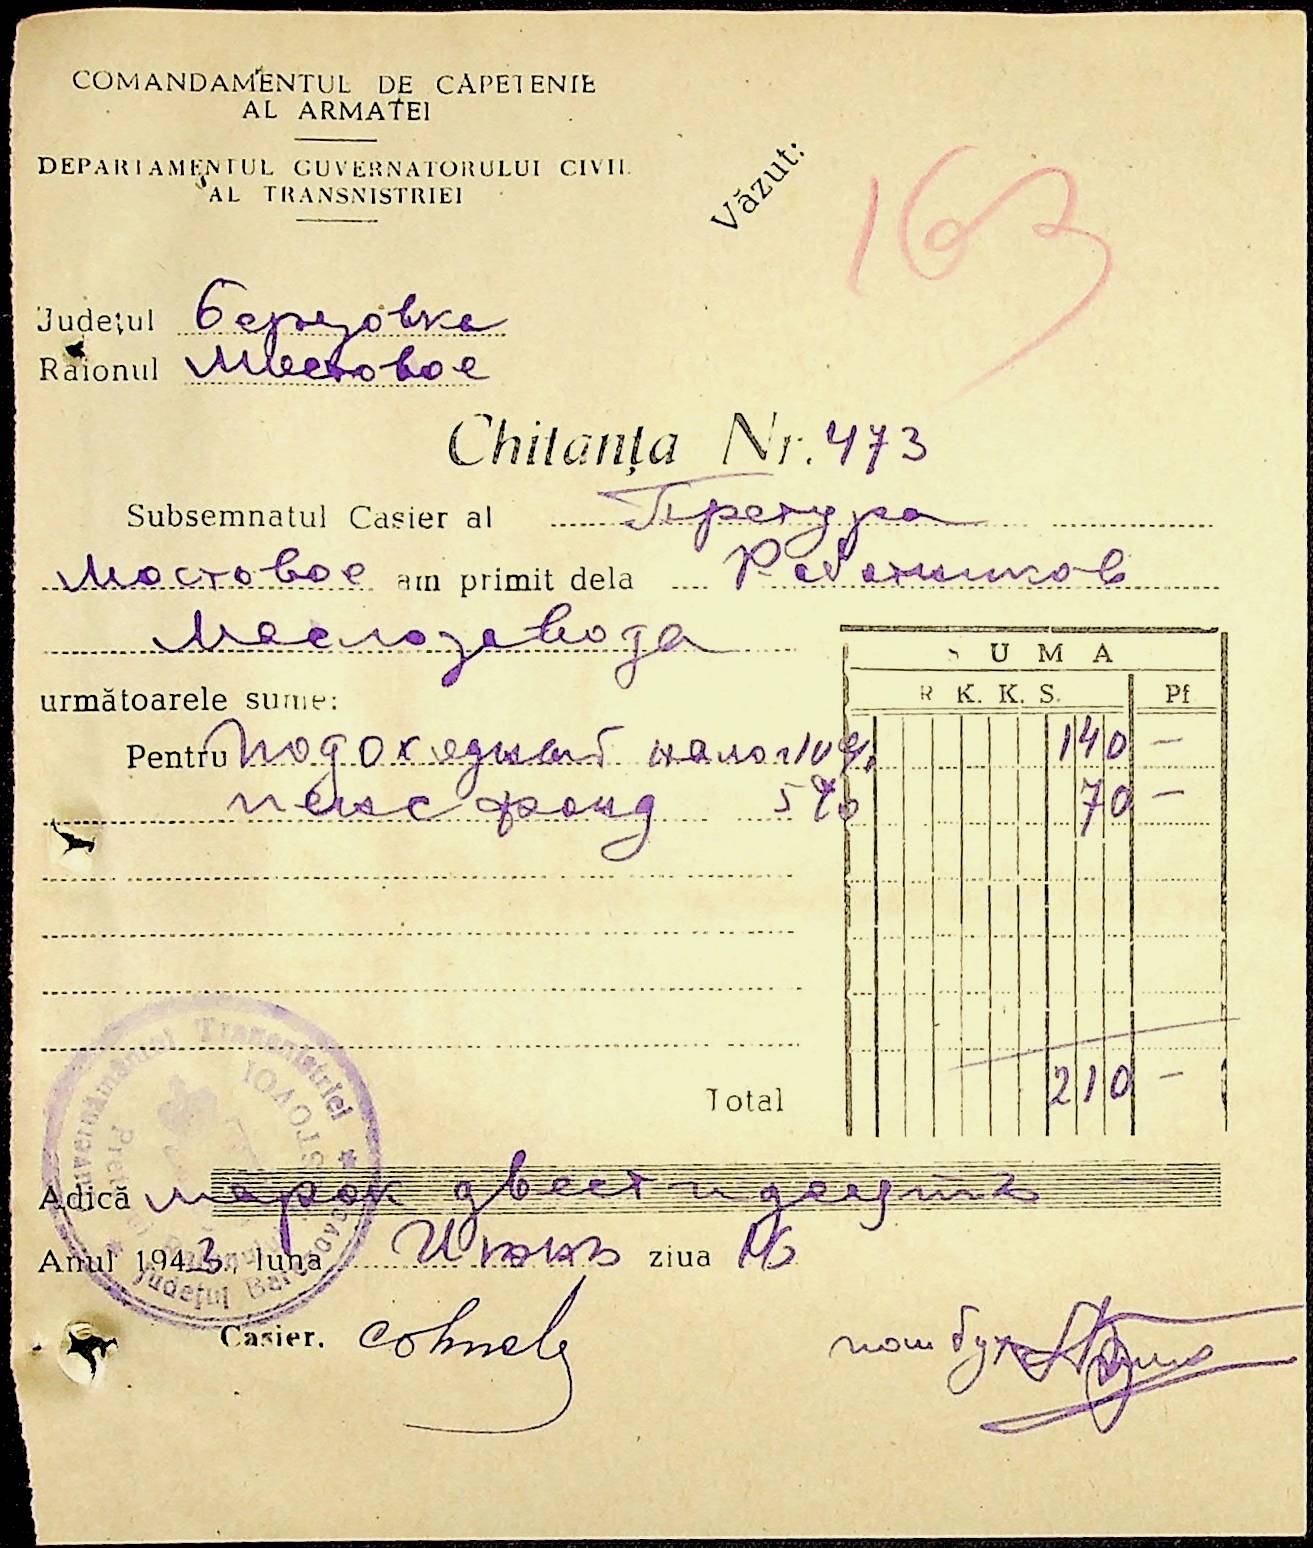 COMANDAMENTUL DE CAPETENIE
AL ARMATEI
DEPARTAMENTUL GUVERNATORULUI CIVIL
AL TRANSNISTRIEI
Văzut:
163
Județul Березовка
Raionul Мостовое
Chitanța Nr. 473
Subsemnatul Casier al Претура
Мостовое am primit dela Работников
Маслозавода
SUMA
următoarele sume:
R K. K. S. Pf
Pentru Подоходный налог 10% 140 —
пенс фонд 5% 70 —
Total 210 —
Guvernământul Transnistriei
Județul
Adică марок двести десять
Anul 1943, luna Июнь ziua 16
Casier.
пом бух